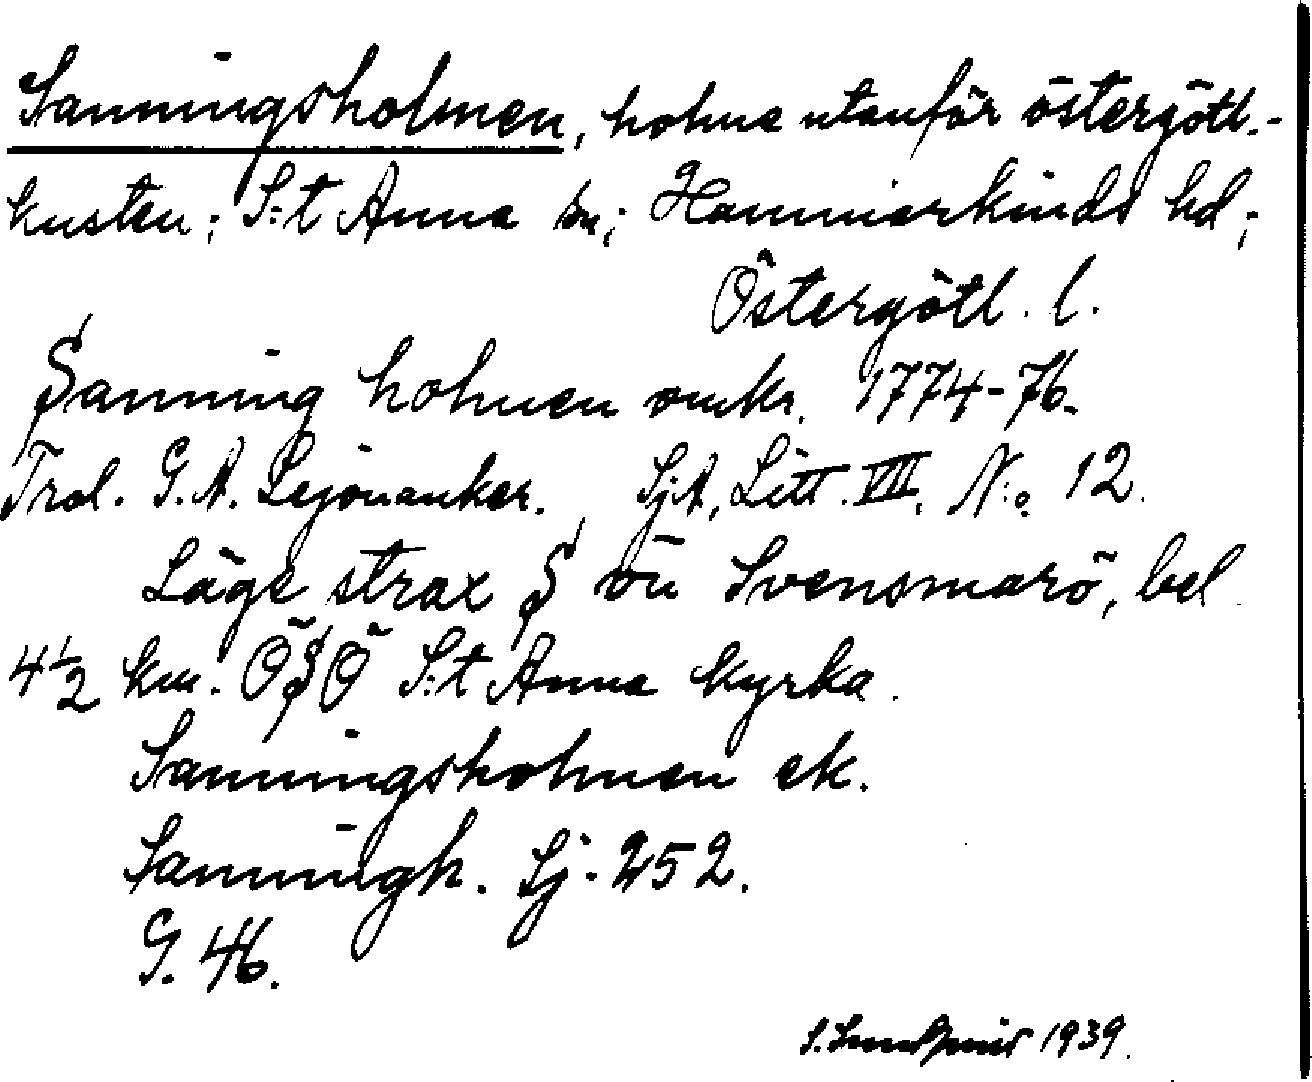 Sanningsholmen, holme utanför östergötl.-
kusten; S:t Anna sn; Hammarkinds hd;
Östergötl. l.
Sanning holmen omkr. 1774-76.
Trol. G. A. Lejonanker. SjA, Litt. VII. N:o 12.
Läge strax S om Svensmarö, bel
4½ km. ÖSÖ S:t Anna kyrka.
Sanningsholmen ek.
Sanningh. Sj. 252.
G. 46.
S. Lundqvist 1939.